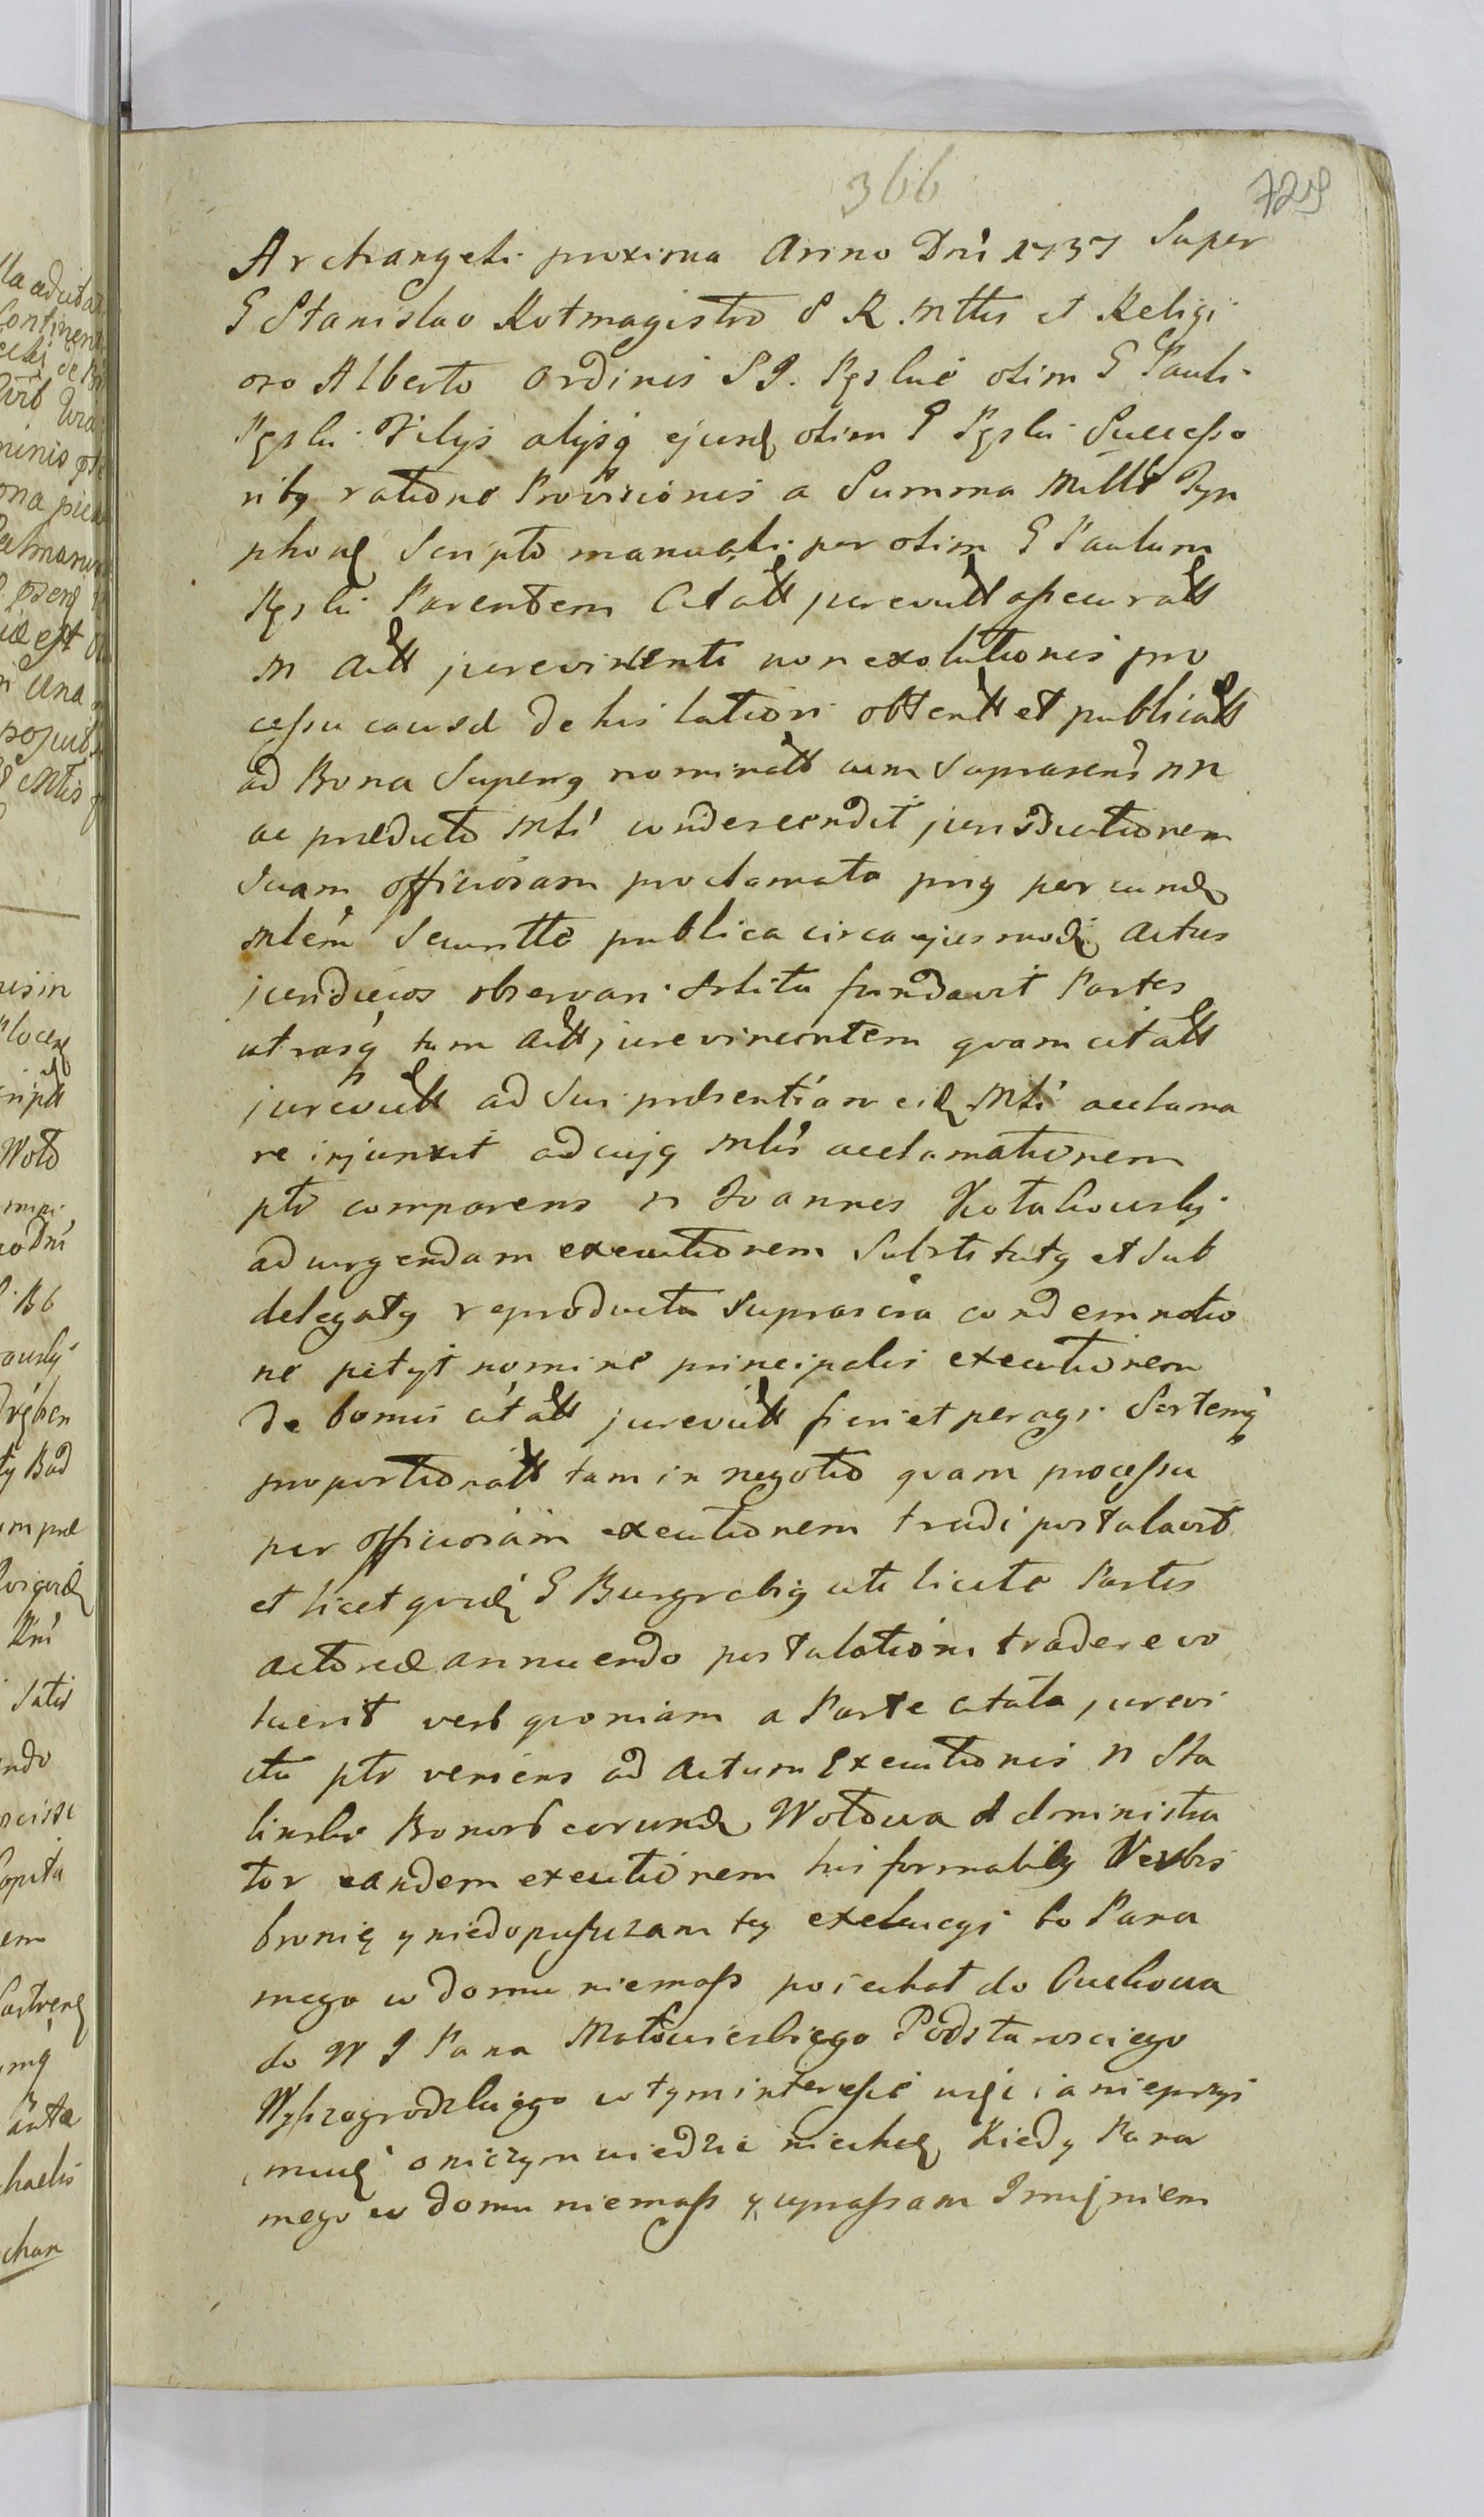 366
729
Archangeli proxima Anno Dni 1737 Super
G Stanislao Rotmagistro S R Mttis et Religi
oso Alberto Ordinis S J. olim G Pauli
Filijs alijsq ejusd olim G Successo
ribq ratione Provisionis a Summa Mille Tyn
phon Scripto manuali per olim G Paulum
Parentem Citatt jurevictt assecuratt
in Actt jurevincenti non exolutionis pro
cessu causa de his lation obtentt et publicatt
ad Bona Superiq nominatt cum Suprascris nn
ac prædicto Mli condescendit jurisdictionem
suam officiosam proclamata priq per eund
Mlem Securitte publica circa ejusmodi Actus
juridicos observari Solita fundavit Partes
utrasq tam Actt jurevincentem quam citatt
jurevictt ad sui præsentiam eid Mli acclama
re injunxit ad cujq Mlis acclamationem
ptr comparens N Joannes
ad urgendam executionem Substitutq et Sub
delegatq reproducta Suprascra condemnatio
ne petyt nomine principalis executionem
de bonis citatt jurevictt fieri et peragi Sortemq
proportionatt tam in negotio quam processu
per officiosam executionem tradi postulavit
et licet quid G Burgrabiq uti licite Partis
Actoreæ annuendo postulationi tradere vo
luerit verb quoniam a Parte citata jurevi
cta ptr veniens ad Actum Executionis N Sta
linski Bonorb eorund Wolowa Administra
tor eandem executionem his formalibq Verbis
bronię y niedopuszczam tey exekucyi bo Pana
mego w domu niemasz poiechał do
do W J Pana Podstarosciego
Wyszogrodzkiego w tym interesie więc ia nieprzyi
muię o niczym wiedzic niechcę Kiedy Pana
mego w domu niemasz y upraszam Imięniem